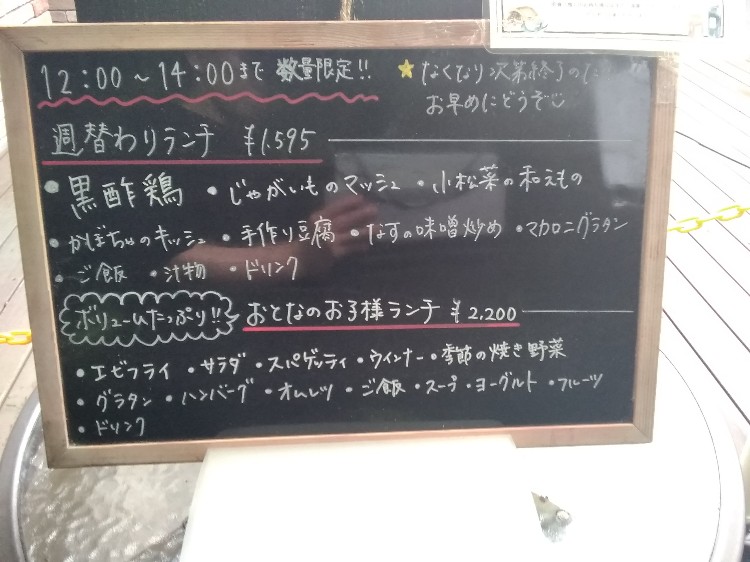 12:00～14:00まで 数量限定!! ★なくなり次第終了の
お早めにどうぞ
週替わりランチ ¥1.595
・黒酢鶏 ・じゃがいものマッシュ ・小松菜の和えもの
・かぼちゃのキッシュ ・手作り豆腐 ・なすの味噌炒め ・マカロニグラタン
・ご飯 ・汁物 ・ドリンク
ボリュームたっぷり!! おとなのお子様ランチ ¥2.200
・エビフライ ・サラダ ・スパゲッティ ・ウインナー ・季節の焼き野菜
・グラタン ・ハンバーグ ・オムレツ ・ご飯 ・スープ ・ヨーグルト ・フルーツ
・ドリンク